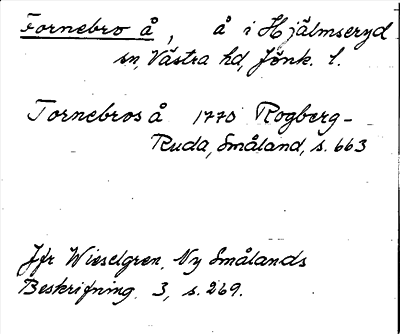 Fornebro å, å i Hjälmseryd
sn, Västra hd, Jönk. l.
Tornebros å 1770 Rogberg-
Ruda, Småland, s. 663
Jfr Wieselgren, Ny Smålands
Beskrifning 3, s. 269.